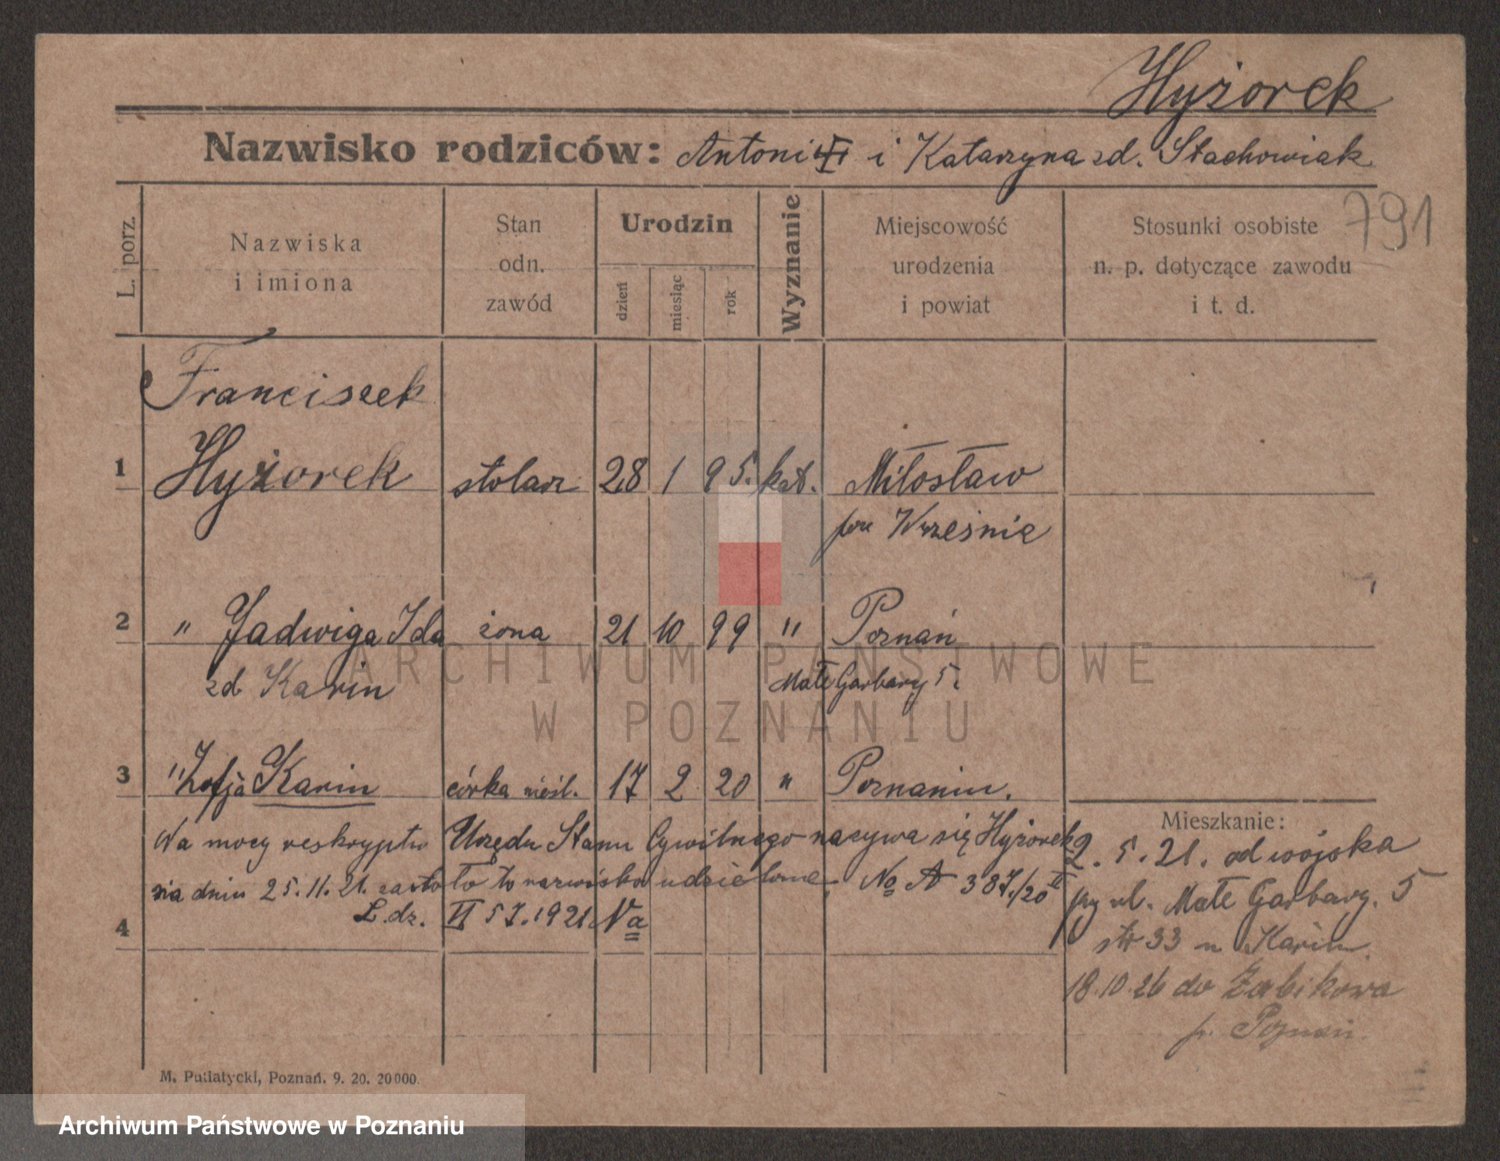 Hyżorek
Nazwisko rodziców: Antoni i Katarzyna zd. Stachowiak
791
L. porz.
Nazwiska
i imiona
Stan
odn.
zawód
Urodzin
dzień
miesiąc
rok
Wyznanie
Miejscowość
urodzenia
i powiat
Stosunki osobiste
n. p. dotyczące zawodu
i t. d.
Franciszek
1 Hyżorek stolarz 28 1 95. kat. Miłosław
pow Wrześnie
2 " Jadwiga Ida żona 21 10 99 " Poznań
zd Karin Małe Garbary 5.
3 " Zofja Karin córka nieśl. 17 2 20 " Poznaniu.
Mieszkanie:
Na mocy reskryptu Urzędu Stanu Cywilnego nazywa się Hyżorek
nia dniu 25.11.21. zosta ło to nazwisko udzielone. No A 387/20
L. dz. VI 57.1921 Na
4
2.5.21. od wojska
przy ul. Małe Garbary. 5
str 33 u Karin.
18.10.26 do Żabikowa
p. Poznań.
M. Putiatycki, Poznań. 9. 20. 20000.
ARCHIWUM PAŃSTWOWE
W POZNANIU
Archiwum Państwowe w Poznaniu